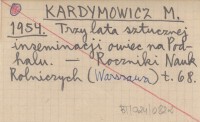 KARDYMOWICZ M.
1954. Trzy lata sztucznej
inseminacji owiec na Pod-
halu. — Roczniki Nauk
Rolniczych (Warszawa) t. 68.